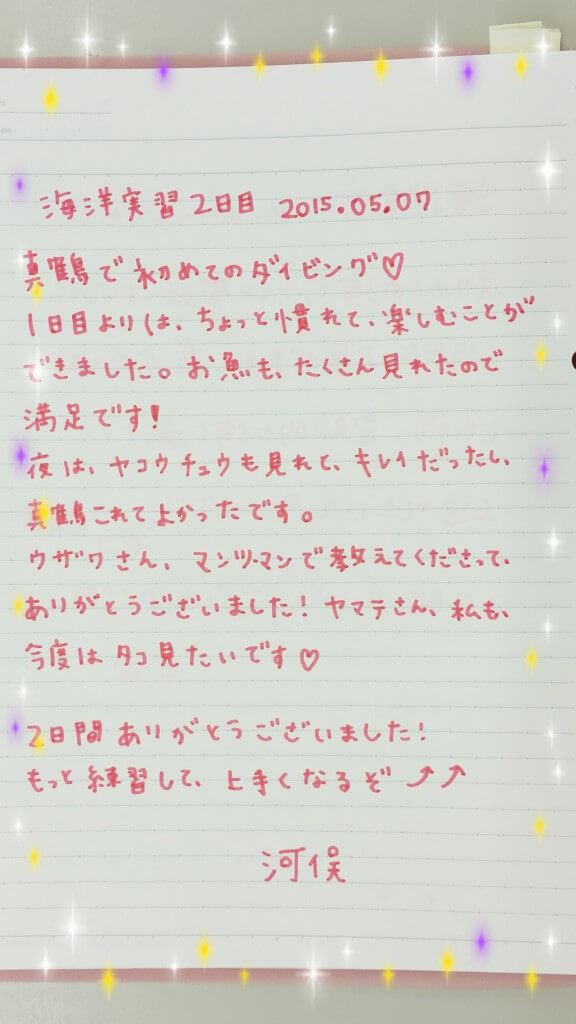 海洋実習2日目 2015.05.07
真鶴で初めてのダイビング♡
1日目よりは、ちょっと慣れて、楽しむことが
できました。お魚も、たくさん見れたので
満足です!
夜は、ヤコウチュウも見れて、キレイだったし、
真鶴これてよかったです。
ウザワさん、マンツーマンで教えてくださって、
ありがとうございました!ヤマテさん、私も、
今度はタコ見たいです♡
2日間ありがとうございました!
もっと練習して、上手くなるぞ⤴⤴
河俣